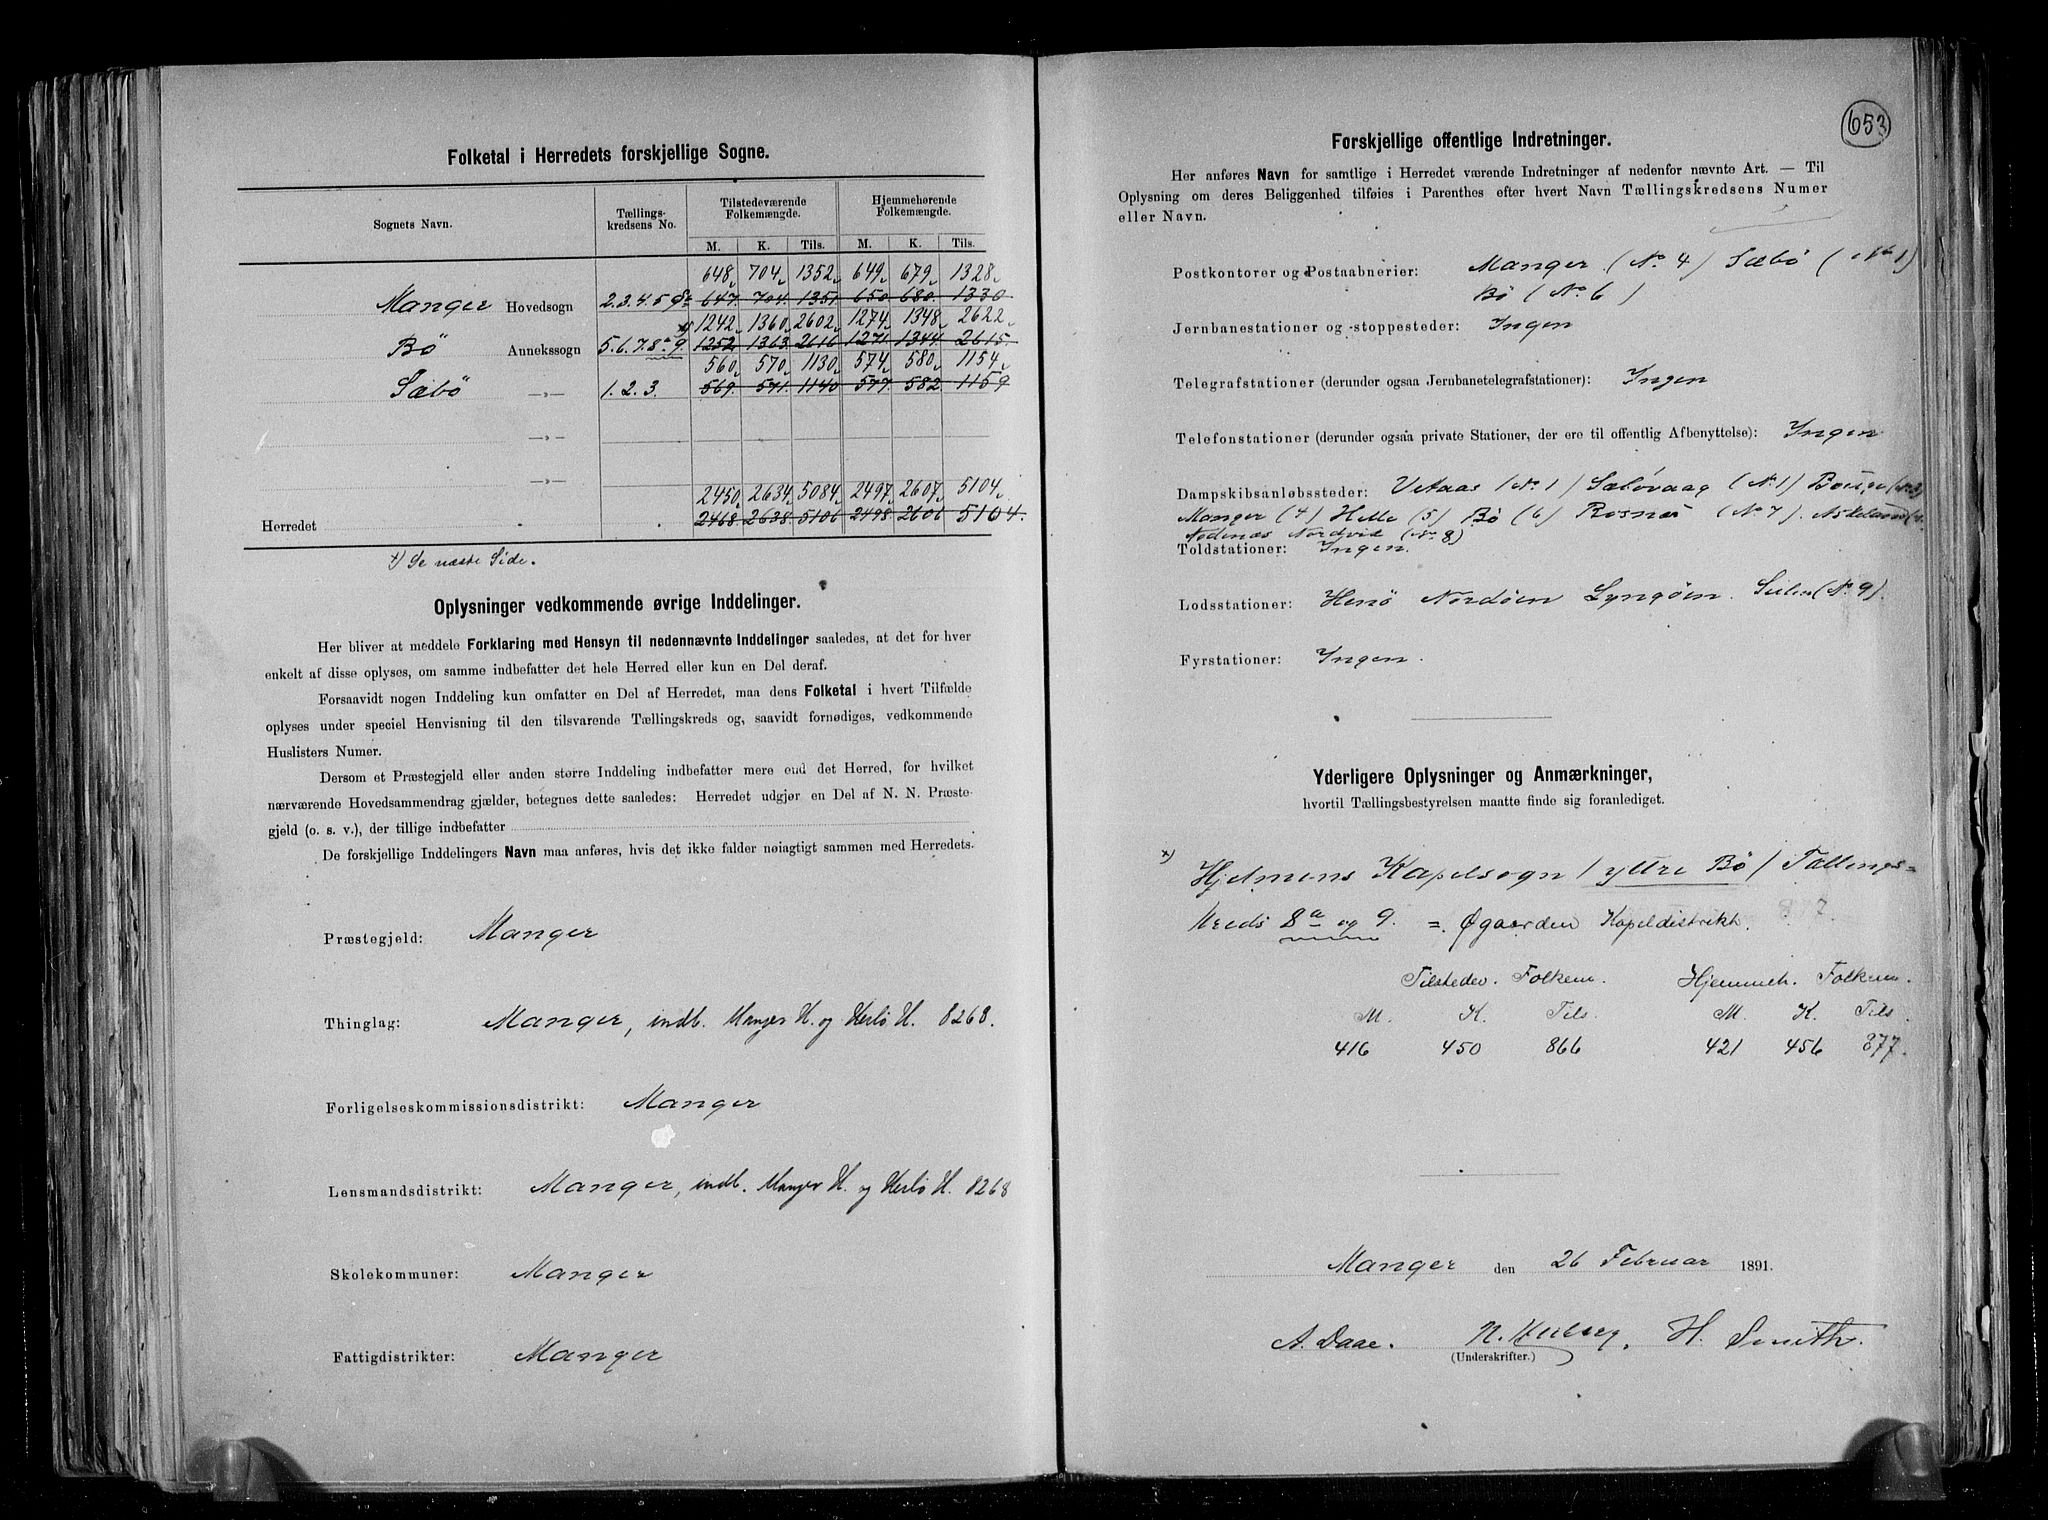 Folketal i Herredets forskjellige Sogne.
Sognets Navn. Tællings-kredsens No. Tilstedeværende Folkemængde. Hjemmehørende Folkemængde.
M. K. Tils. M. K. Tils.
648 704 1352 649 679 1328
Manger Hovedsogn 2.3.4.5 647 704 1351 650 680 1330
1242 1360 2602 1274 1348 2622
Bö Annekssogn 5.6.7.8a 9 x) 1252 1363 2616 1271 1344 2615
560 570 1130 574 580 1154
Sæbö —„— 1.2.3. 569 571 1140 577 582 1159
—„—
—„—
2450 2634 5084 2497 2607 5104
Herredet 2468 2638 5106 2498 2606 5104.
x) Se næste Side.
Oplysninger vedkommende øvrige Inddelinger.
Her bliver at meddele Forklaring med Hensyn til nedennævnte Inddelinger saaledes, at det for hver
enkelt af disse oplyses, om samme indbefatter det hele Herred eller kun en Del deraf.
Forsaavidt nogen Inddeling kun omfatter en Del af Herredet, maa dens Folketal i hvert Tilfælde
oplyses under speciel Henvisning til den tilsvarende Tællingskreds og, saavidt fornødiges, vedkommende
Huslisters Numer.
Dersom et Præstegjeld eller anden større Inddeling indbefatter mere end det Herred, for hvilket
nærværende Hovedsammendrag gjælder, betegnes dette saaledes: Herredet udgjør en Del af N. N. Præste-
gjeld (o. s. v.), der tillige indbefatter
De forskjellige Inddelingers Navn maa anføres, hvis det ikke falder nøiagtigt sammen med Herredets.
Præstegjeld: Manger
Thinglag: Manger, indb. Manger H. og Herlö H. 8268.
Forligelseskommissionsdistrikt: Manger
Lensmandsdistrikt: Manger, indb. Manger H. og Herlö H. 8268
Skolekommuner: Manger
Fattigdistrikter: Manger
653
Forskjellige offentlige Indretninger.
Her anføres Navn for samtlige i Herredet værende Indretninger af nedenfor nævnte Art. — Til
Oplysning om deres Beliggenhed tilføies i Parenthes efter hvert Navn Tællingskredsens Numer
eller Navn.
Postkontorer og Postaabnerier: Manger (No 4) Sæbö (No 1)
Bö (No 6)
Jernbanestationer og -stoppesteder: Ingen
Telegrafstationer (derunder ogsaa Jernbanetelegrafstationer): Ingen
Telefonstationer (derunder ogsaa private Stationer, der ere til offentlig Afbenyttelse): Ingen
Dampskibsanløbssteder: Vetaas (No 1) Sæbövaag (No 1) (No 3)
Manger (4) Helle (5) Bö (6) Rosnæs (No 7). Askeland
Nordvik (No 8)
Toldstationer: Ingen.
Lodsstationer: Henö Nordöen Lyngöen. (No 9).
Fyrstationer: Ingen.
Yderligere Oplysninger og Anmærkninger,
hvortil Tællingsbestyrelsen maatte finde sig foranlediget.
x) Hjelmens Kapelsogn / yttre Bö / Tællings=
kreds 8a og 9. =. Øgaarden Kapeldistrikt. 877.
Tilstedev. Folkem. Hjemmeh. Folkem.
M. K. Tils. M. K. Tils.
416 450 866 421 456 877.
Manger den 26 Februar 1891.
A. Daae. N. H. Smith.
(Underskrifter.)